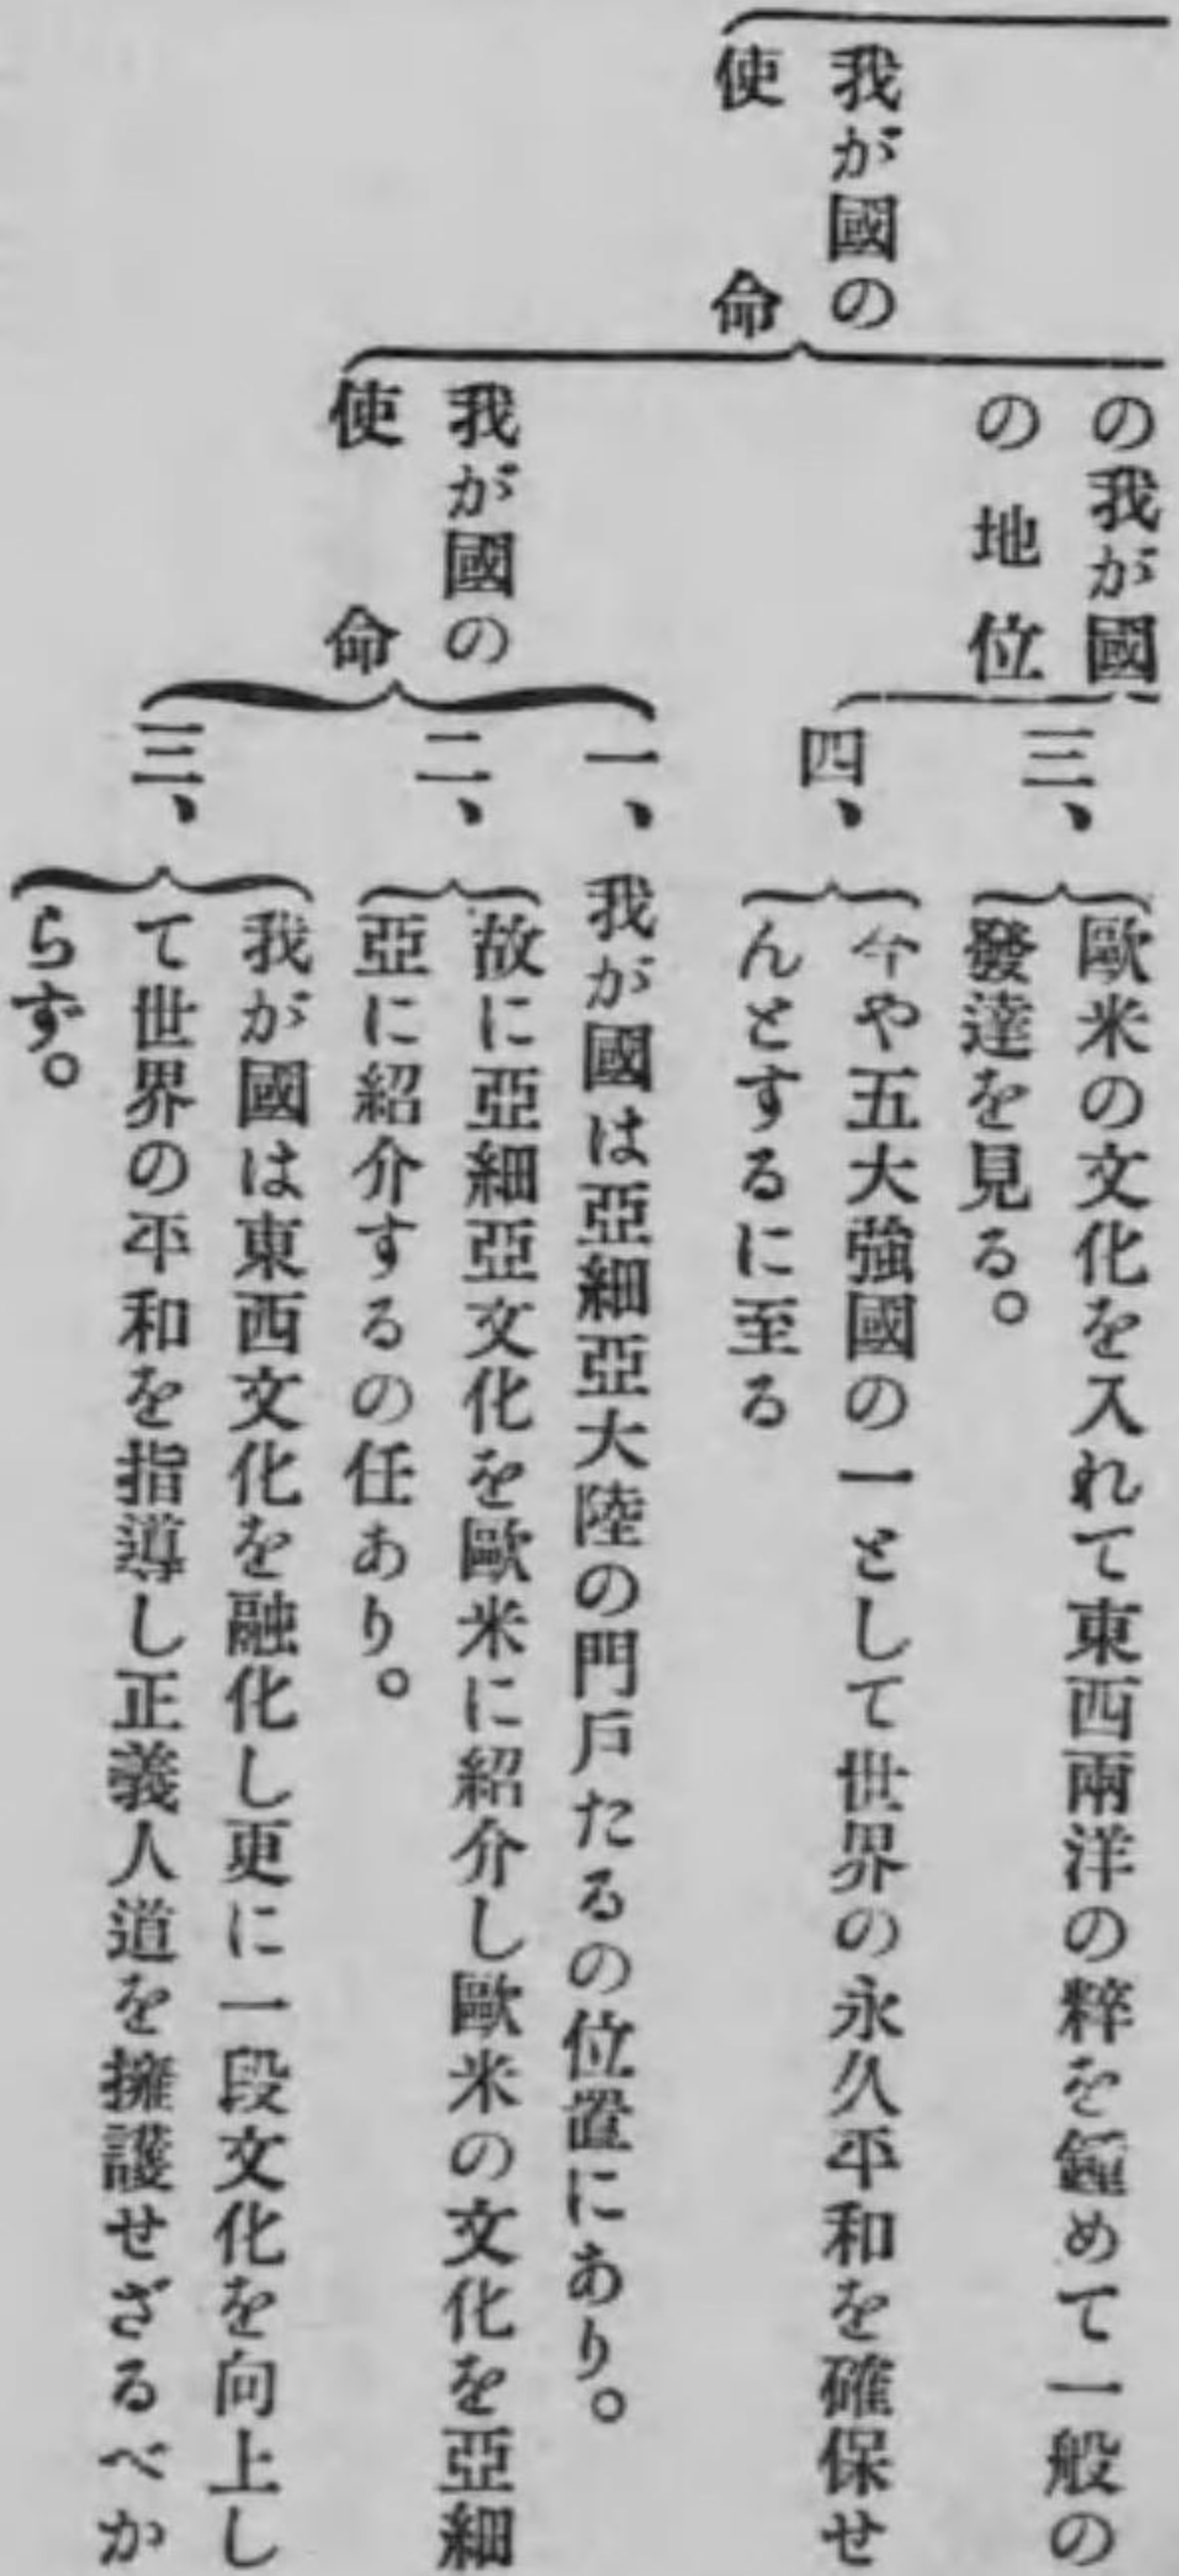 我が國の
使命
の我が國
の地位
三、
歐米の文化を入れて東西兩洋の粹を鍾めて一般の
發達を見る。
四、
今や五大強國の一として世界の永久平和を確保せ
んとするに至る
我が國の
使命
一、我が國は亞細亞大陸の門戸たるの位置にあり。
二、
故に亞細亞文化を歐米に紹介し歐米の文化を亞細
亞に紹介するの任あり。
三、
我が國は東西文化を融化し更に一段文化を向上し
て世界の平和を指導し正義人道を擁護せざるべか
らず。